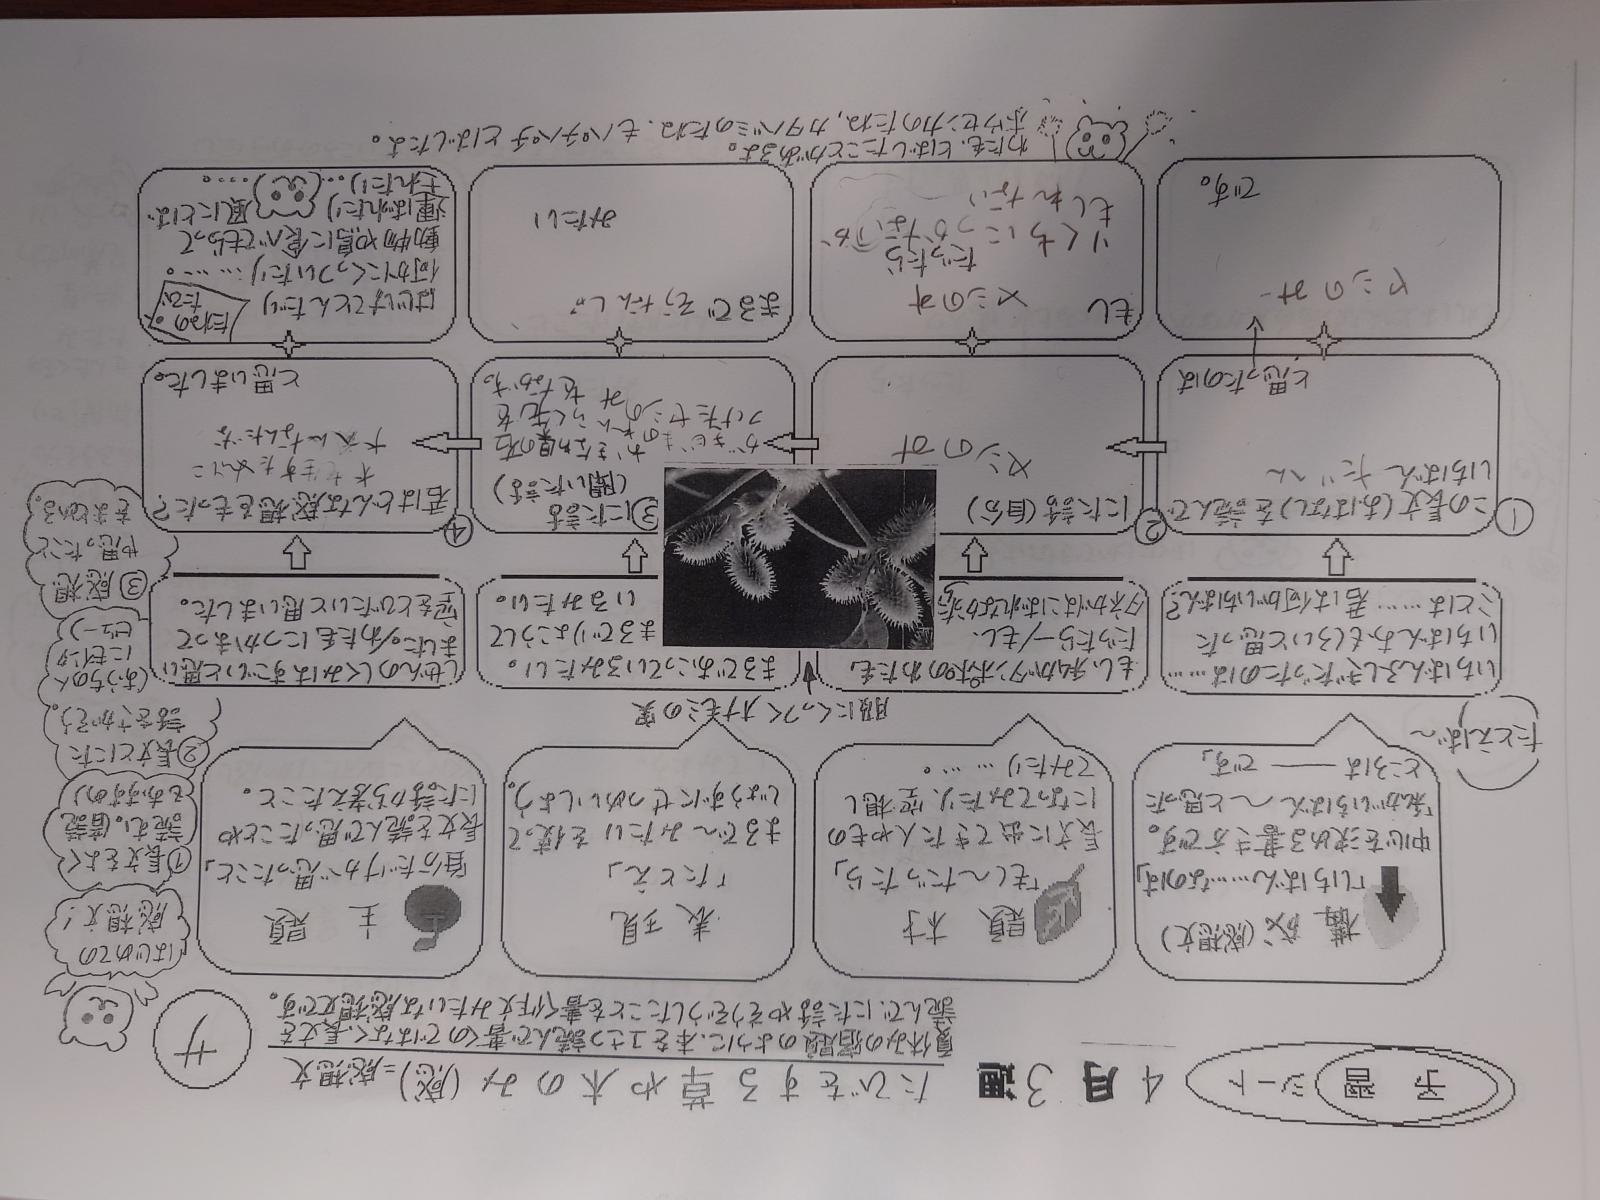 予習
シート
4月3週
たびをする草や木のみ(感)=感想文
夏休みの宿題のように、本を1さつ読んで書くのではなく、長文を
読んで、にた話やそうぞうしたことを書く作文みたいな感想文です。
サ
はじめての
感想文!
構成(感想文)
「いちばん……なのは」
中心を決める書き方です。
「私がいちばん～と思った
ところは――です。」
題材
「もし～だったら」
長文に出てきた人やもの
になってみたり、空想し
てみたり……。
表現
「たとえ」
まるで～みたいを使って
じょうずにせつめいしよう。
主題
「自分だけが思ったこと」
長文を読んで思ったことや
にた話から考えたこと。
①長文をよく
読む。(音読
もおすすめ)
②長文とにた
話をさがそう。
(おうちの人
にもインタ
ビュー)
③感想
や思ったこと
をまとめる。
たとえば～
いちばんふしぎだったのは……
いちばんおもしろいと思った
ことは……君は何がいちばん?
もし私がタンポポのわた毛
だったら/もし、
タネがはこばれなかったら
服にくっつくオナモミの実
まるでおこっているみたい。
まるでりょこうして
いるみたい。
しぜんのしくみはすごいと思い
ました。/わた毛につかまって
空をとびたいと思いました。
①
この長文(おはなし)を読んで
いちばん だいへん
と思ったのは
②
にた話(自分)
メシのみ
③にた話
(聞いた話)
④
君はどんな感想をもった?
大へんなんだな
と思いました。
メシのみ
です。
もし
メシのみ
だったら
りくちにつかないか
もしれない
まるで
みたい
はじけてとんだり
何かにくっついたり……。
動物や鳥に食べてもらって
運ばれたり 風にとば
されたり……。
たねの
たび。
わた毛、とばしたことがあるよ。
ホウセンカのたね、カタバミのたね、もパチパチとばしたよ。